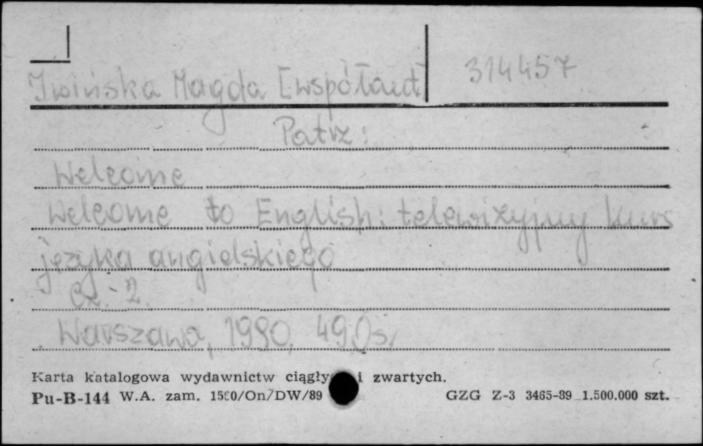 Iwińska Magda [współaut] 314457
Patrz:
Welcome
Welcome to English: telewizyjny kurs
języka angielskiego
Cz. 2.
Warszawa, 1990.
Karta katalogowa wydawnictw ciągły i zwartych.
Pu-B-144 W.A. zam. /On/DW/89 GZG Z-3 3465-89 1.500.000 szt.